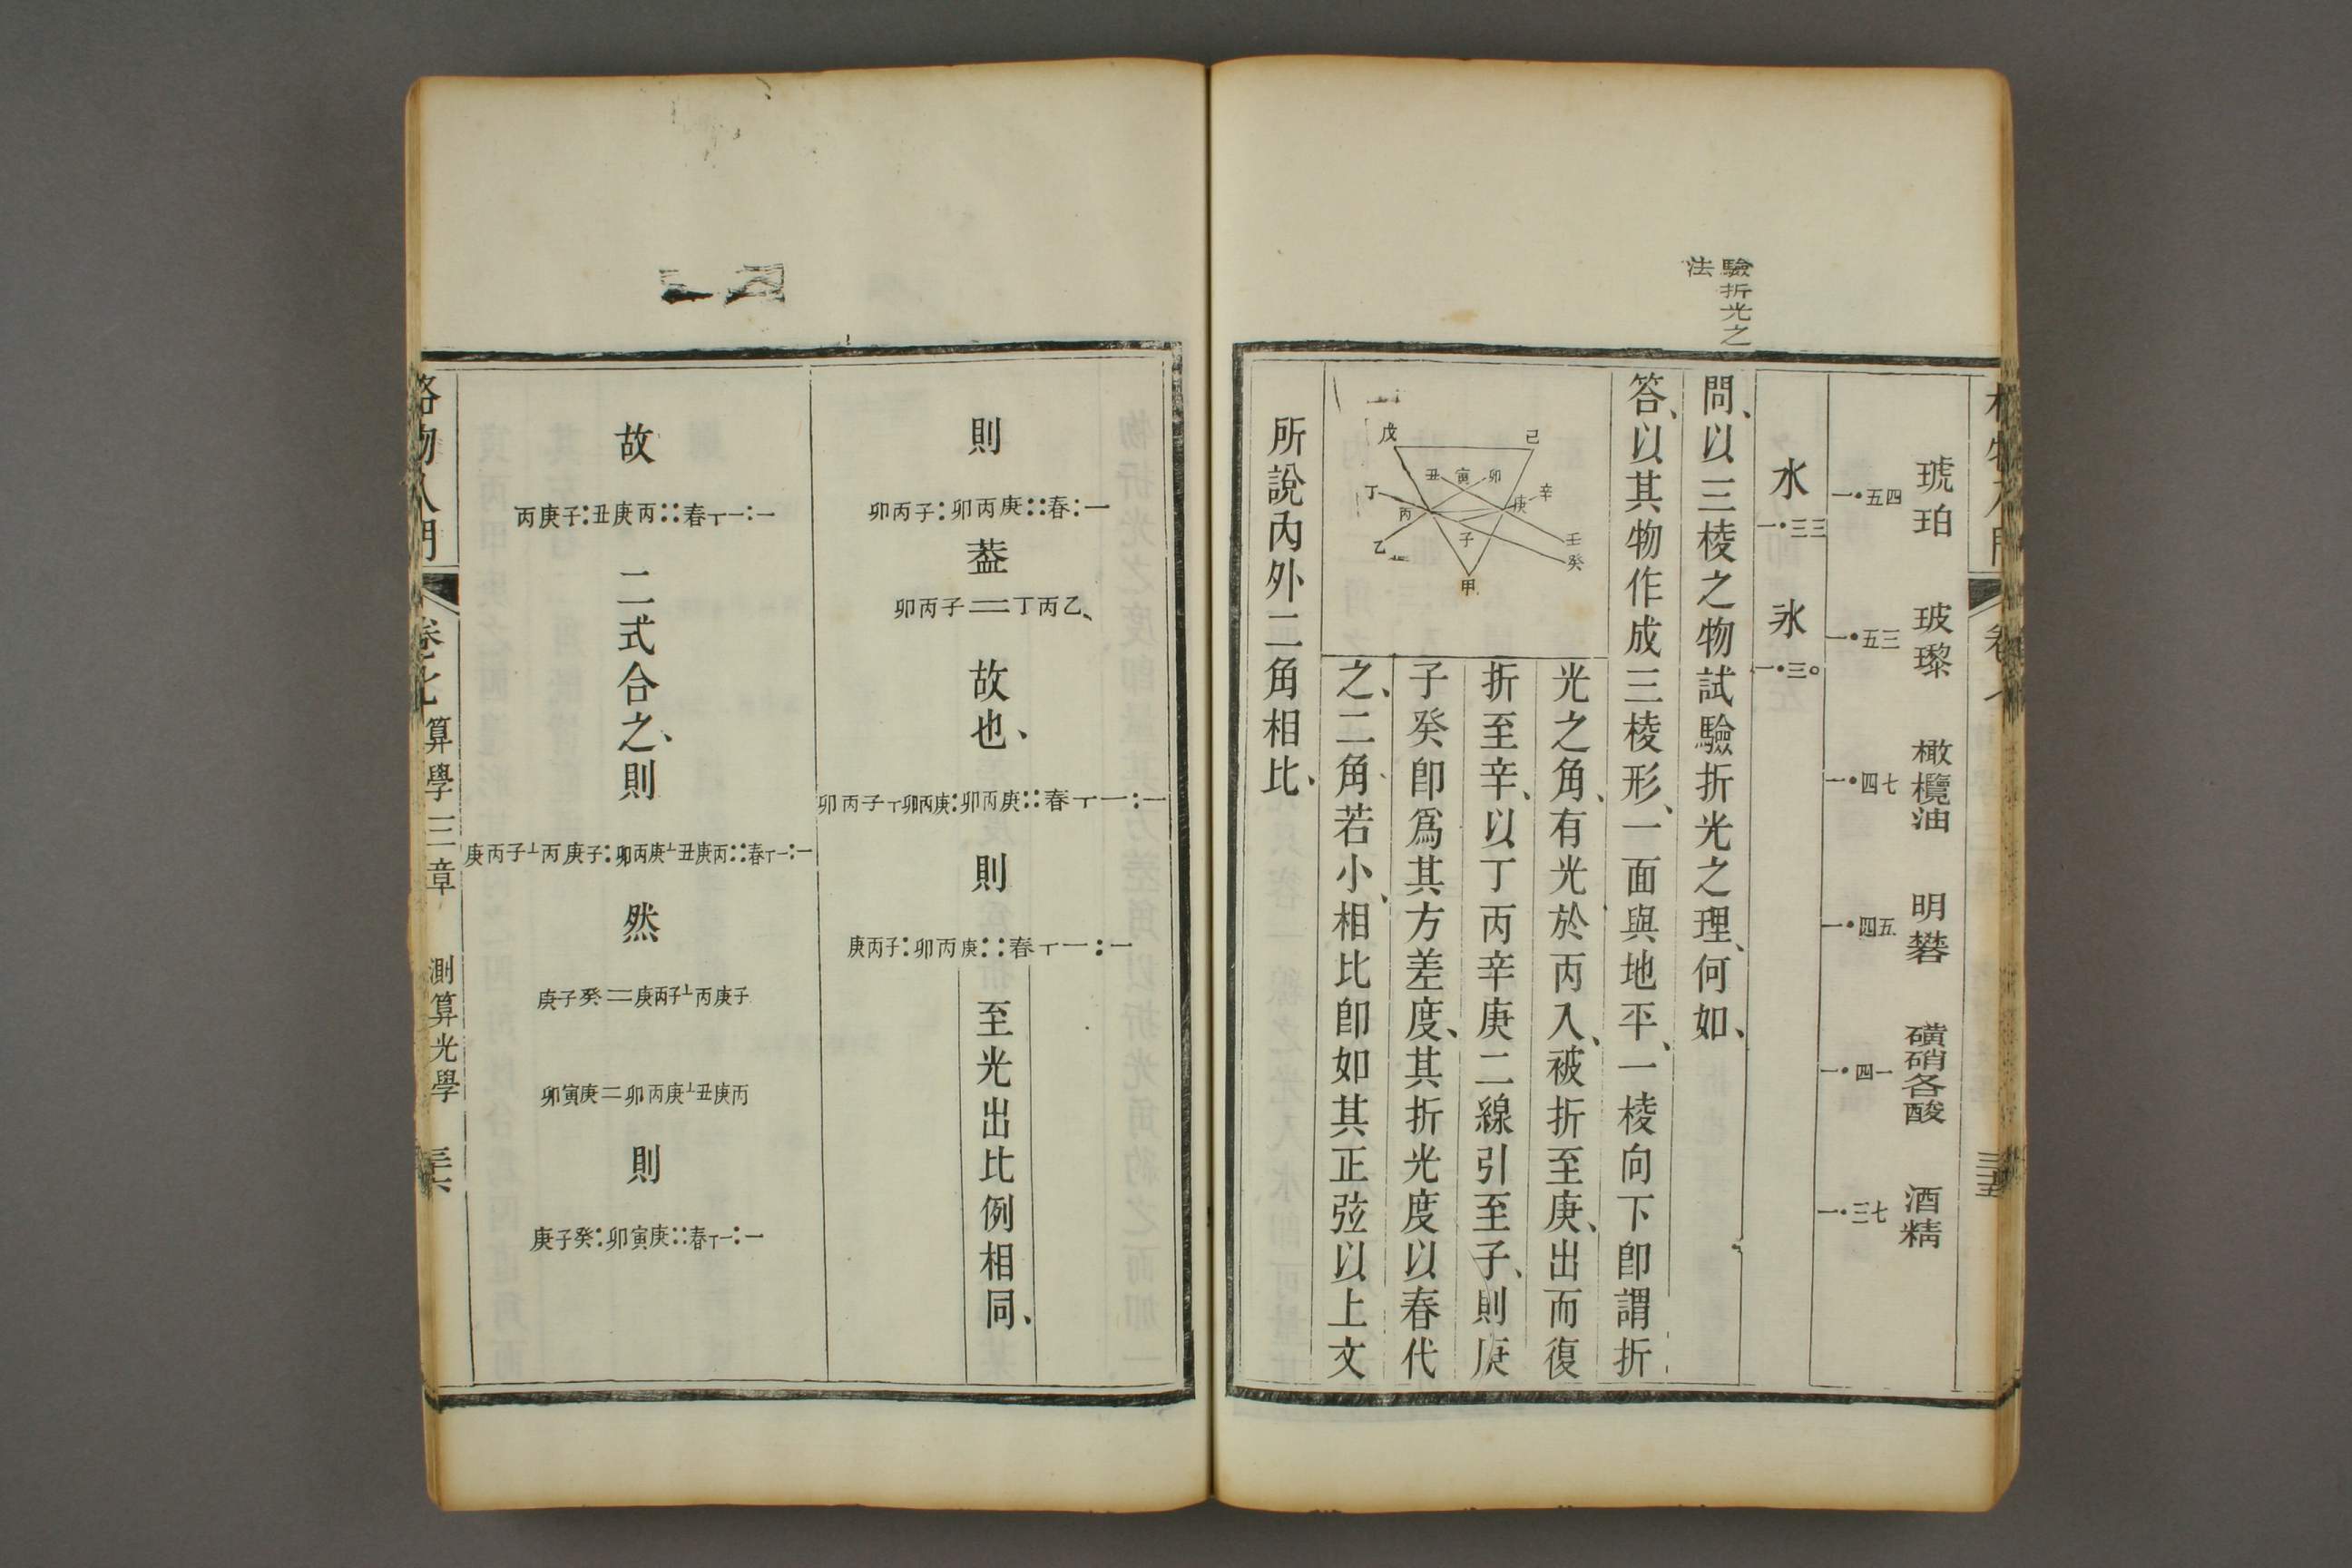 琥珀 玻瓈 橄欖油 明礬 磺硝各酸 酒精
一•五四 一•五三 一•四七 一•四五 一•四一 一•三七
水 氷
一•三三 一•三〇
驗折光之
法
問、以三棱之物試驗折光之理、何如、
答、以其物作成三棱形、一面與地平、一棱向下卽謂折
光之角、有光於丙入、被折至庚、出而復
折至辛、以丁丙辛庚二線引至子、則庚
子癸卽爲其方差度、其折光度以春代
之、二角若小、相比卽如其正弦以上文
所說內外二角相比、
戊 己 丑 寅 卯 丁 丙 乙 庚 辛 子 壬 癸 甲
則
卯丙子:卯丙庚::春:一
葢
卯丙子=丁丙乙、
故也、
卯丙子丅卯丙庚:卯丙庚::春丅一:一
則
庚丙子:卯丙庚::春丅一:一
至光出比例相同、
故
丙庚子:丑庚丙::春丅一:一
二式合之、則
庚丙子⊥丙庚子:卯丙庚⊥丑庚丙::春丅一:一
然
庚子癸=庚丙子⊥丙庚子
卯寅庚=卯丙庚⊥丑庚丙
則
庚子癸:卯寅庚::春丅一:一
格物入門 卷七 算學三章 測算光學 三六